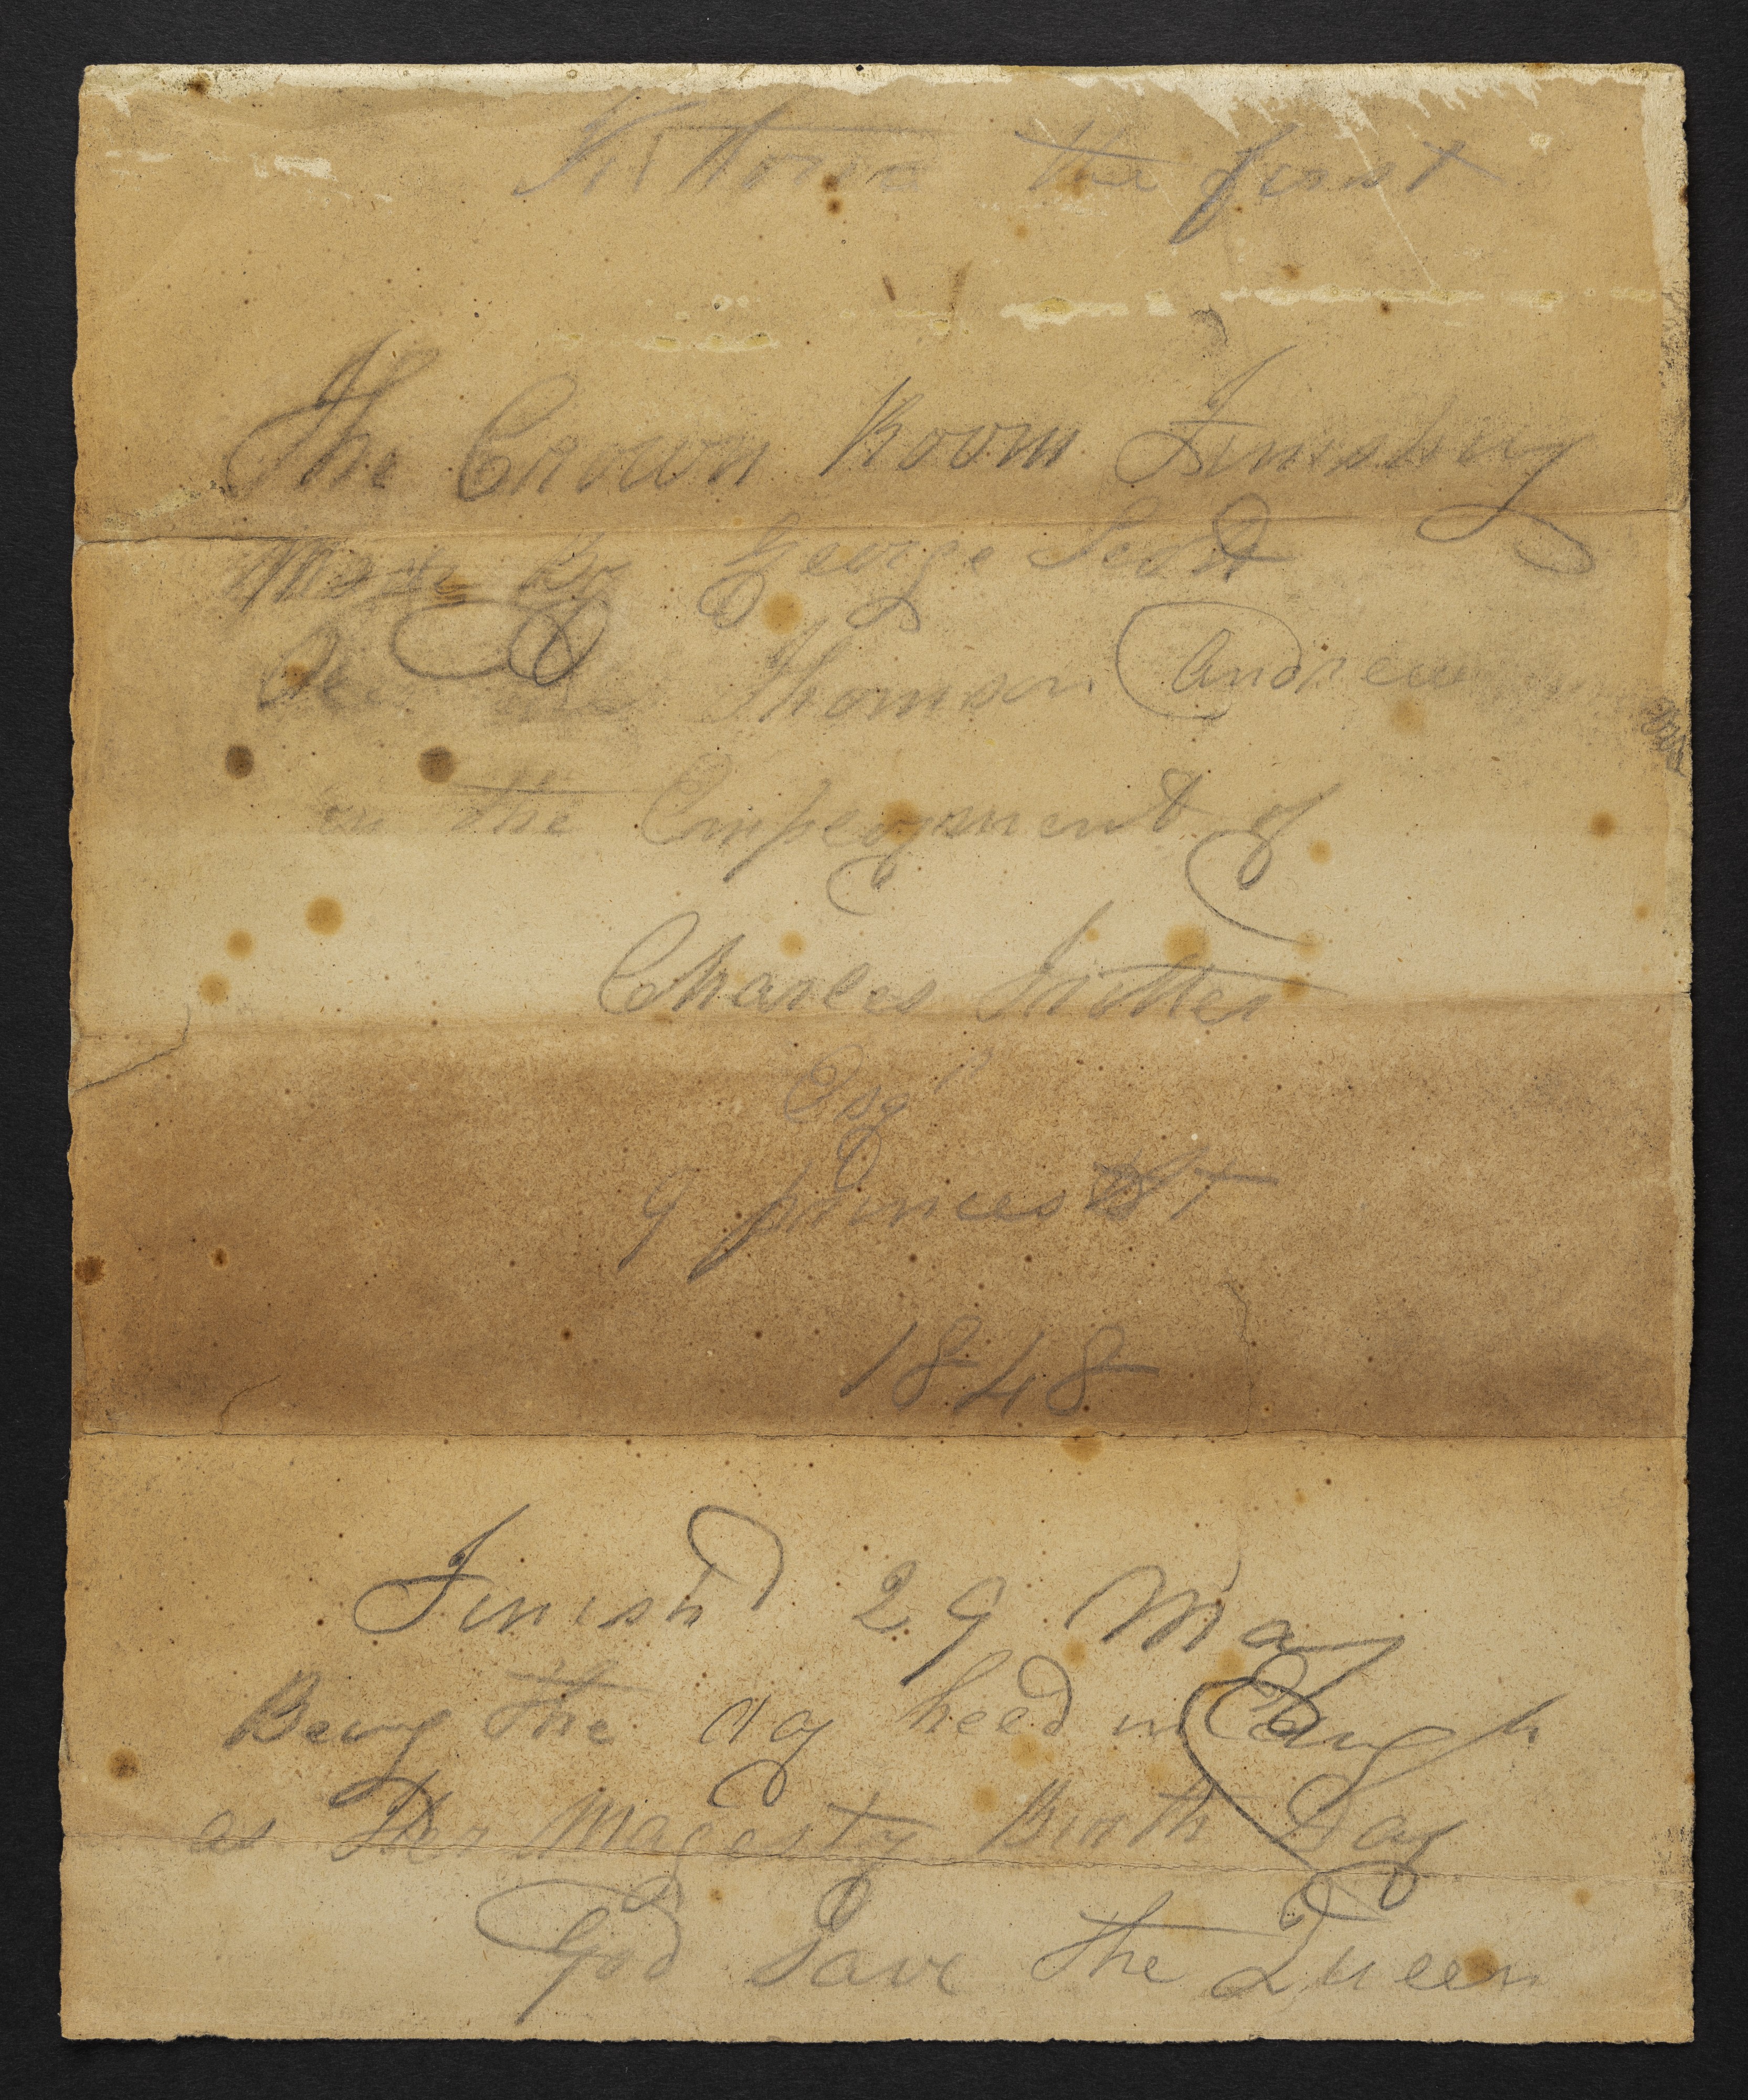 Victoria the first
The Crown Room Finishing
Made By George Scott
Thomson Andrew
in the Employment of
Charles Trotter
Esqr
9 princes St
1848
Finishd 29 May
Being the day held in Edingh
as Her Magesty Birth Day
God Save the Queen